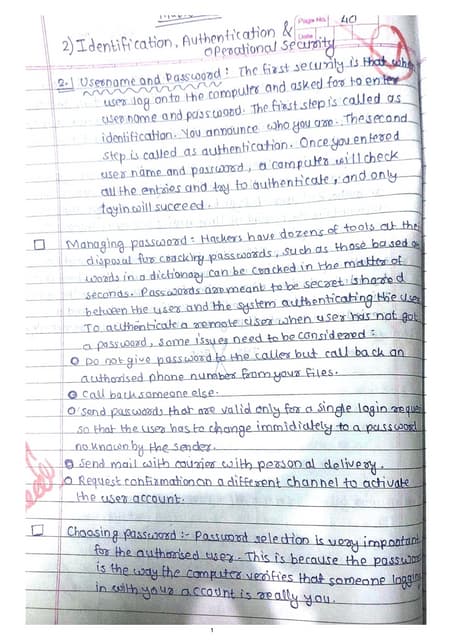 Page No. 40
Date
2) Identification, Authentication &
Operational Security
2.1 Username and Password : The first security is that when
user log onto the computer and asked for to enter
username and password. The first step is called as
identification. You announce who you are. The second
step is called as authentication. Once you entered
user name and password, a computer will check
all the entries and try to authenticate, and only
login will succeed.
Managing password : Hackers have dozens of tools at the
disposal for cracking passwords, such as those based on
words in a dictionary can be cracked in the matter of
seconds. Passwords are meant to be secret is shared
between the user and the system authenticating the user
To authenticate a remote user when user has not got
a password, some issues need to be considered :
Do not give password to the caller but call back an
authorised phone number from your files.
Call back someone else.
Send passwords that are valid only for a single login reque
so that the user has to change immidiately to a password
no known by the sender.
Send mail with courier with personal delivery.
Request confirmation on a different channel to activate
the user account.
Choosing password :- Password selection is very important
for the authorised user. This is because the passwo
is the way the computer verifies that someone logging
in with your account is really you.
1